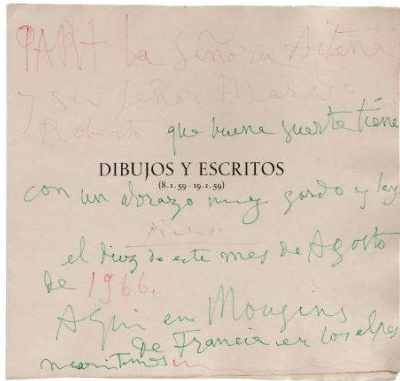 PARA La Señora Actena
y su Señor Marido
Roberto que buena suerte tiene
DIBUJOS Y ESCRITOS
(8.1.59 - 19.1.59)
con un abrazo muy gordo y
el diez de este mes de Agosto
de 1966.
Aqui en Mougins
de Francia en los alpes
maritimos